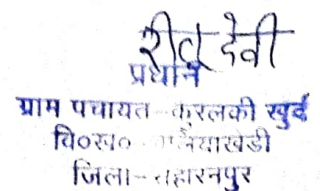 रीतू देवी
प्रधान
ग्राम पंचायत कुरलकी खुर्द
वि०ख० याखेडी
जिला-सहारनपुर